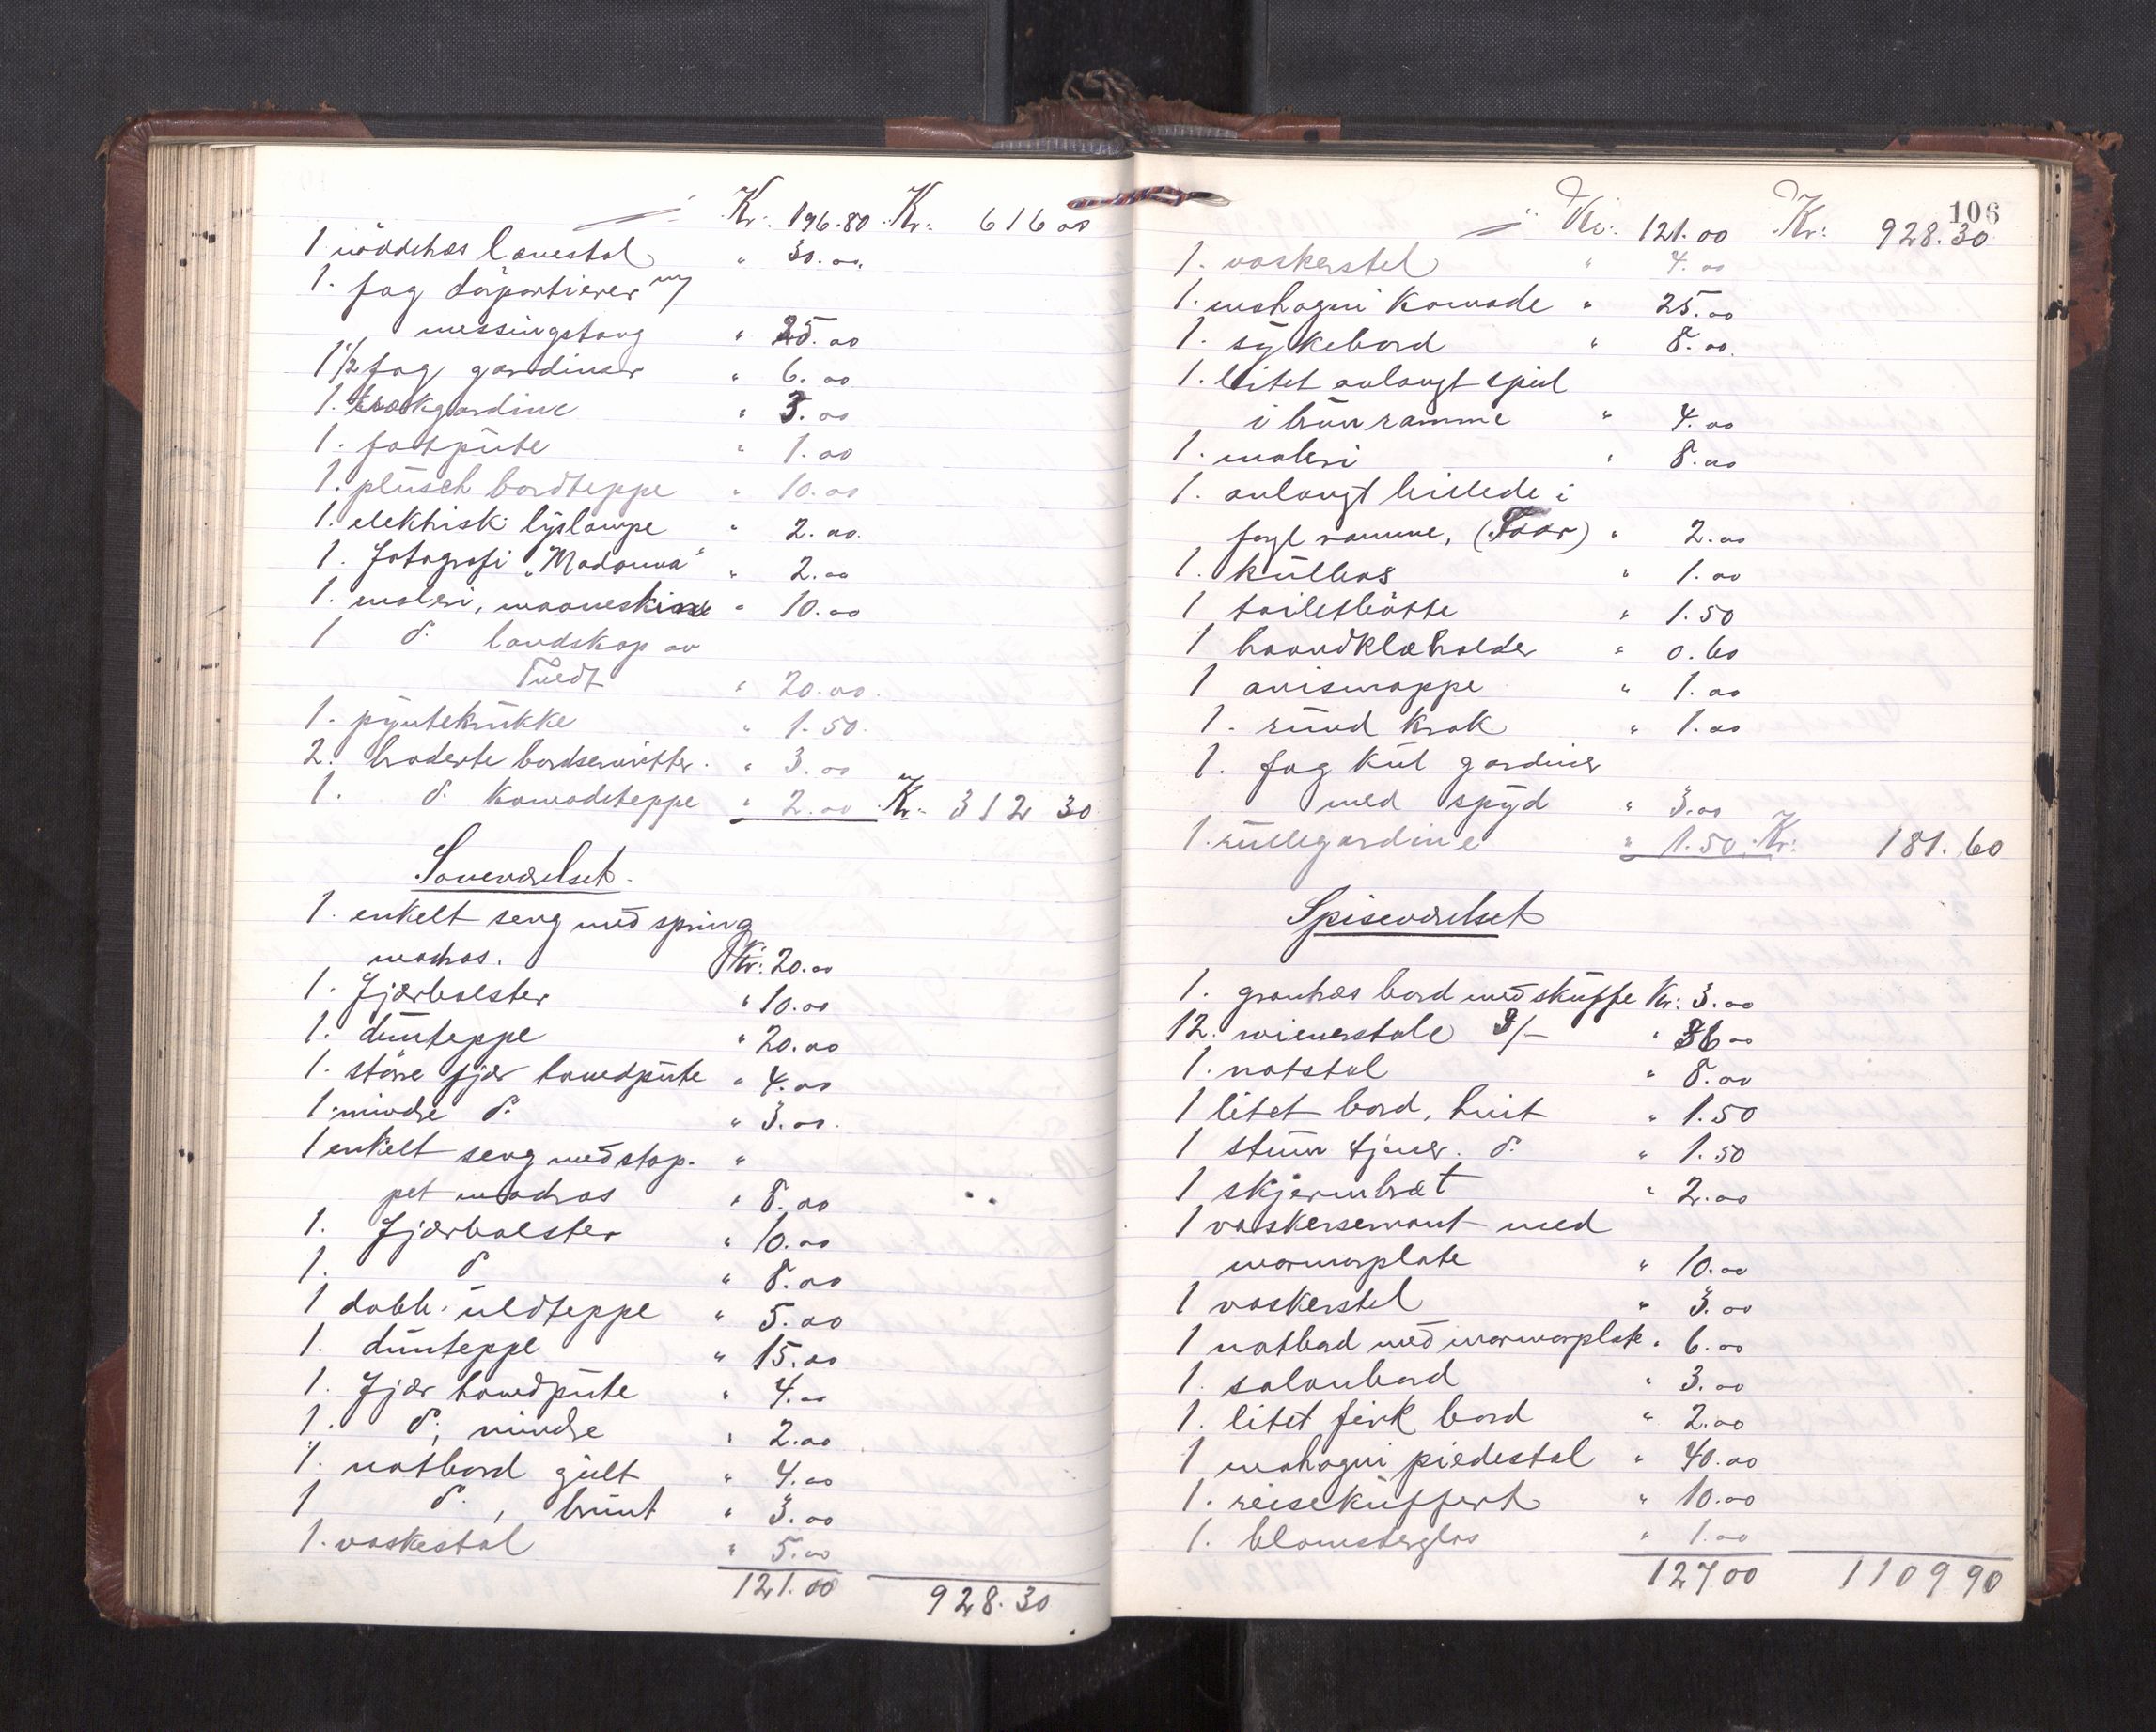 Kr. 196.80 Kr. 616 00
1 nöddetræs lænestol " 30.00
1. fag dörportierer m/
messingstang " 25.00
1 1/2 fag gardiner " 6.00
1. trækgardine " 3.00
1. fotpute " 1.00
1. plüsch bordteppe " 10.00
1. elektrisk lyslampe " 2.00
1. fotografi "Madonna" " 2.00
1. maleri, maaneskinn " 10.00
1 d. landskap av
Tvedt " 20.00
1. pyntekrukke " 1.50
2. broderte bordservietter " 3.00
1. d. komodeteppe " 2.00 Kr. 312 30
Soveværelset.
1. enkelt seng med spring
madras. Kr: 20.00
1. Fjærbolster " 10.00
1. dunteppe " 20.00
1. större fjær hovedpute " 4.00
1 mindre d. " 3.00
1 enkelt seng med stop- "
pet madras " 8.00
1. Fjærbolster " 10.00
1. d " 8.00
1 dobb. uldteppe " 5.00
1. dunteppe " 15.00
1. Fjær hovedpute " 4.00
1. d; mindre " 2.00
1. natbord gult " 4.00
1 d. , brunt " 3.00
1. vaskestol " 5.00
121.00 928.30
106
Kr: 121.00 Kr: 928.30
1. vaskerstel " 4.00
1. mahogni Komode " 25.00
1. sykebord " 8.00
1. litet avlangt speil
i brun ramme " 4.00
1. maleri " 8.00
1. avlangt billede i
forg. ramme, (Faar) " 2.00
1. kulboks " 1.00
1 toiletbötte " 1.50
1 haandklæholder " 0.60
1 avismappe " 1.00
1. rund krak " 1.00
1. fag kul gardiner
med spyd " 3.00
1. rullegardine " 1.50 Kr: 181.60
Spiseværelset
1. grantræs bord med skuffe Kr: 3.00
12. wienerstole 3/- " 36 00
1. natstol " 8.00
1 litet bord, hvit " 1.50
1 stum tjener. d. " 1.50
1 skjermbræt " 2.00
1 vaskerservant med
marmorplate " 10.00
1 vaskerstel " 3.00
1 natbord med marmorplate " 6.00
1. salonbord " 3.00
1. litet firk bord " 2.00
1 mahogni piedestal " 40.00
1. reisekuffert " 10.00
1. blomsterglas " 1.00
127 00 1109 90